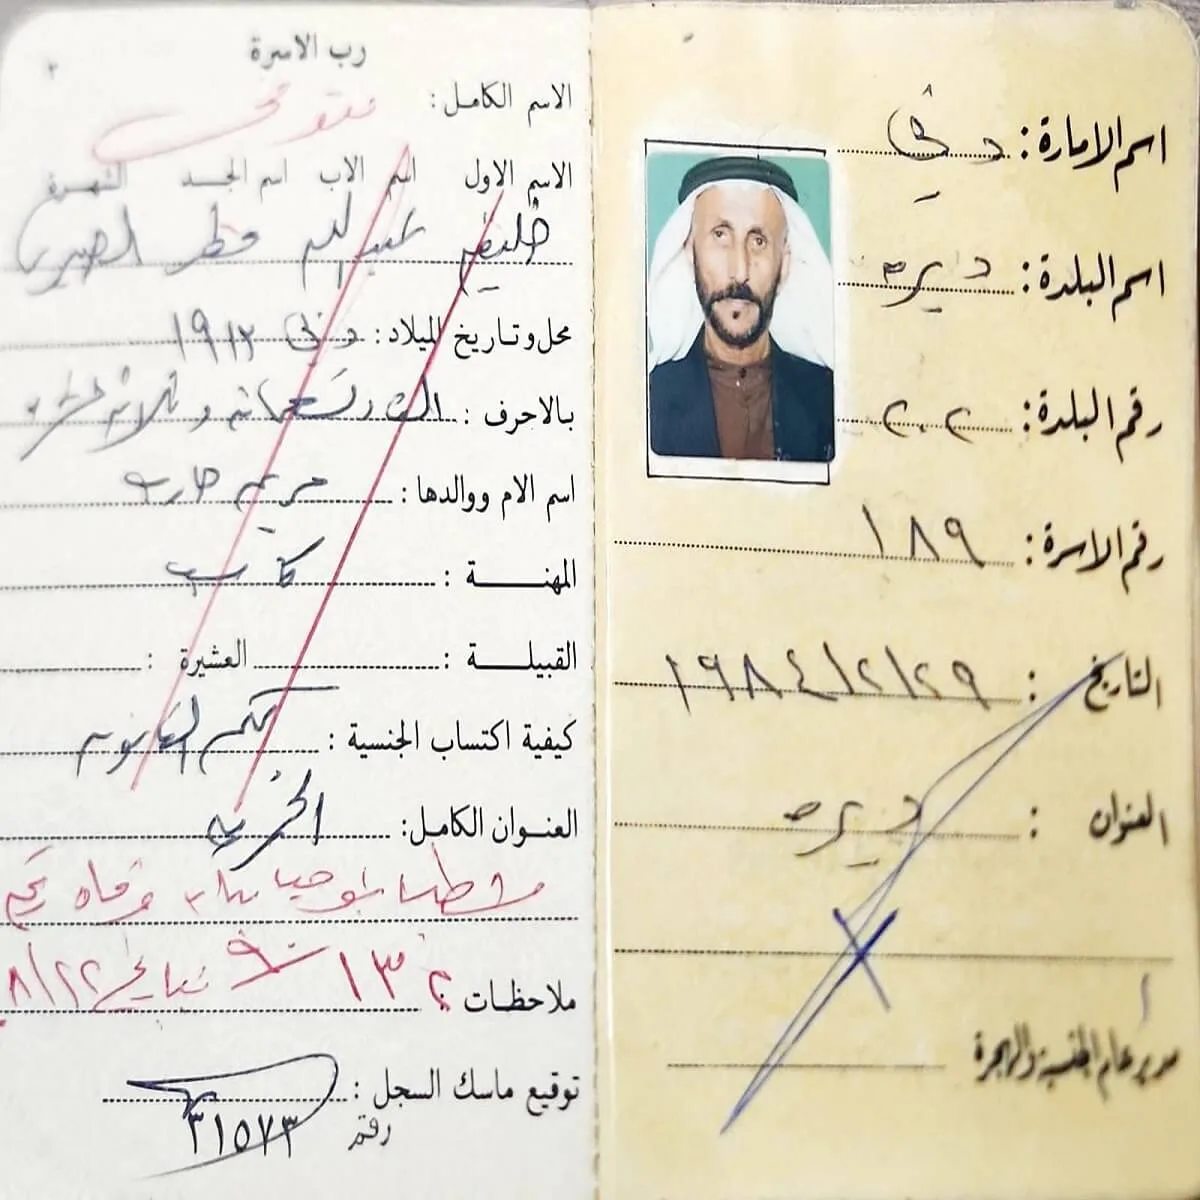 اسم الامارة : دبي
اسم البلدة : ديره
رقم البلدة : ٢٠٢
رقم الاسرة : ١٨٩
التاريخ : ١٩٨٤/٢/٢٩
العنوان : ديره
مدير عام الجنسية والهجرة
٢
رب الاسرة
الاسم الكامل : متوفى
الاسم الاول اسم الاب اسم الجد الشهرة
مطر
محل وتاريخ الميلاد : دبي ١٩١٣
بالاحرف : وتسعمائة وثلاثة عشر
اسم الام ووالدها : مريم حارب
المهنة : كاسب
القبيلة : العشيرة :
كيفية اكتساب الجنسية : بحكم القانون
العنوان الكامل :
وفاه رقم
ملاحظات
توقيع ماسك السجل :
رقم ٣١٥٧٣